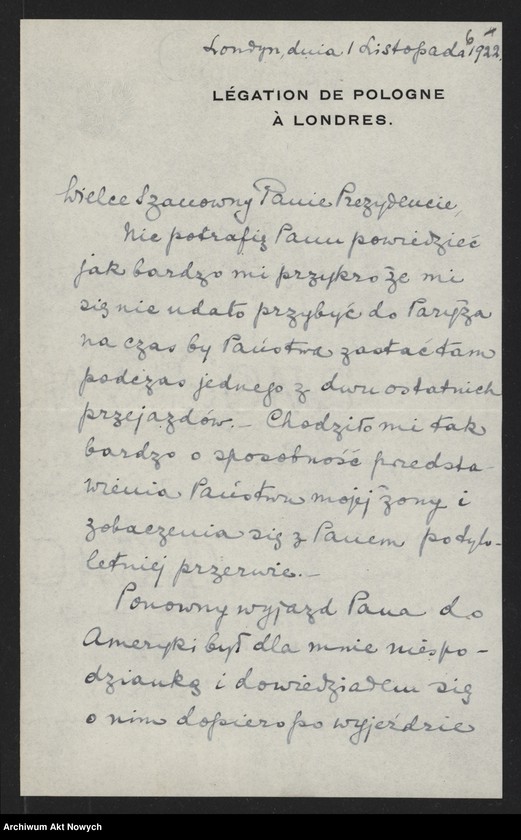 Londyn, dnia 1 Listopada 1922.
6
LÉGATION DE POLOGNE
À LONDRES.
Wielce Szanowny Panie Prezydencie,
Nie potrafię Panu powiedzieć
jak bardzo mi przykro że mi
się nie udało przybyć do Paryża
na czas by Państwa zastać tam
podczas jednego z dwu ostatnich
przejazdów. – Chodziło mi tak
bardzo o sposobność przedsta-
wienia Państwu mojej żony i
zobaczenia się z Panem po tylo-
letniej przerwie. –
Ponowny wyjazd Pana do
Ameryki był dla mnie niespo-
dzianką i dowiedziałem się
o nim dopiero po wyjeździe
Archiwum Akt Nowych